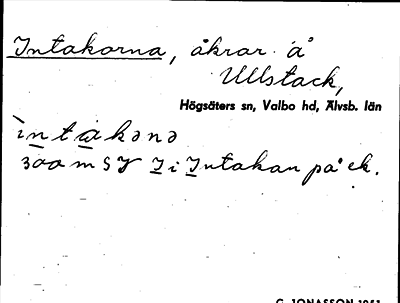 Intakorna, åkrar å
Ullstack,
Högsäters sn, Valbo hd, Älvsb. län
ìntàkənə
300 m SV I i Intakan på ek.
G. JONASSON 1951